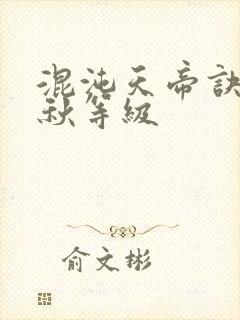 混沌天帝訣
秋等級
俞文彬